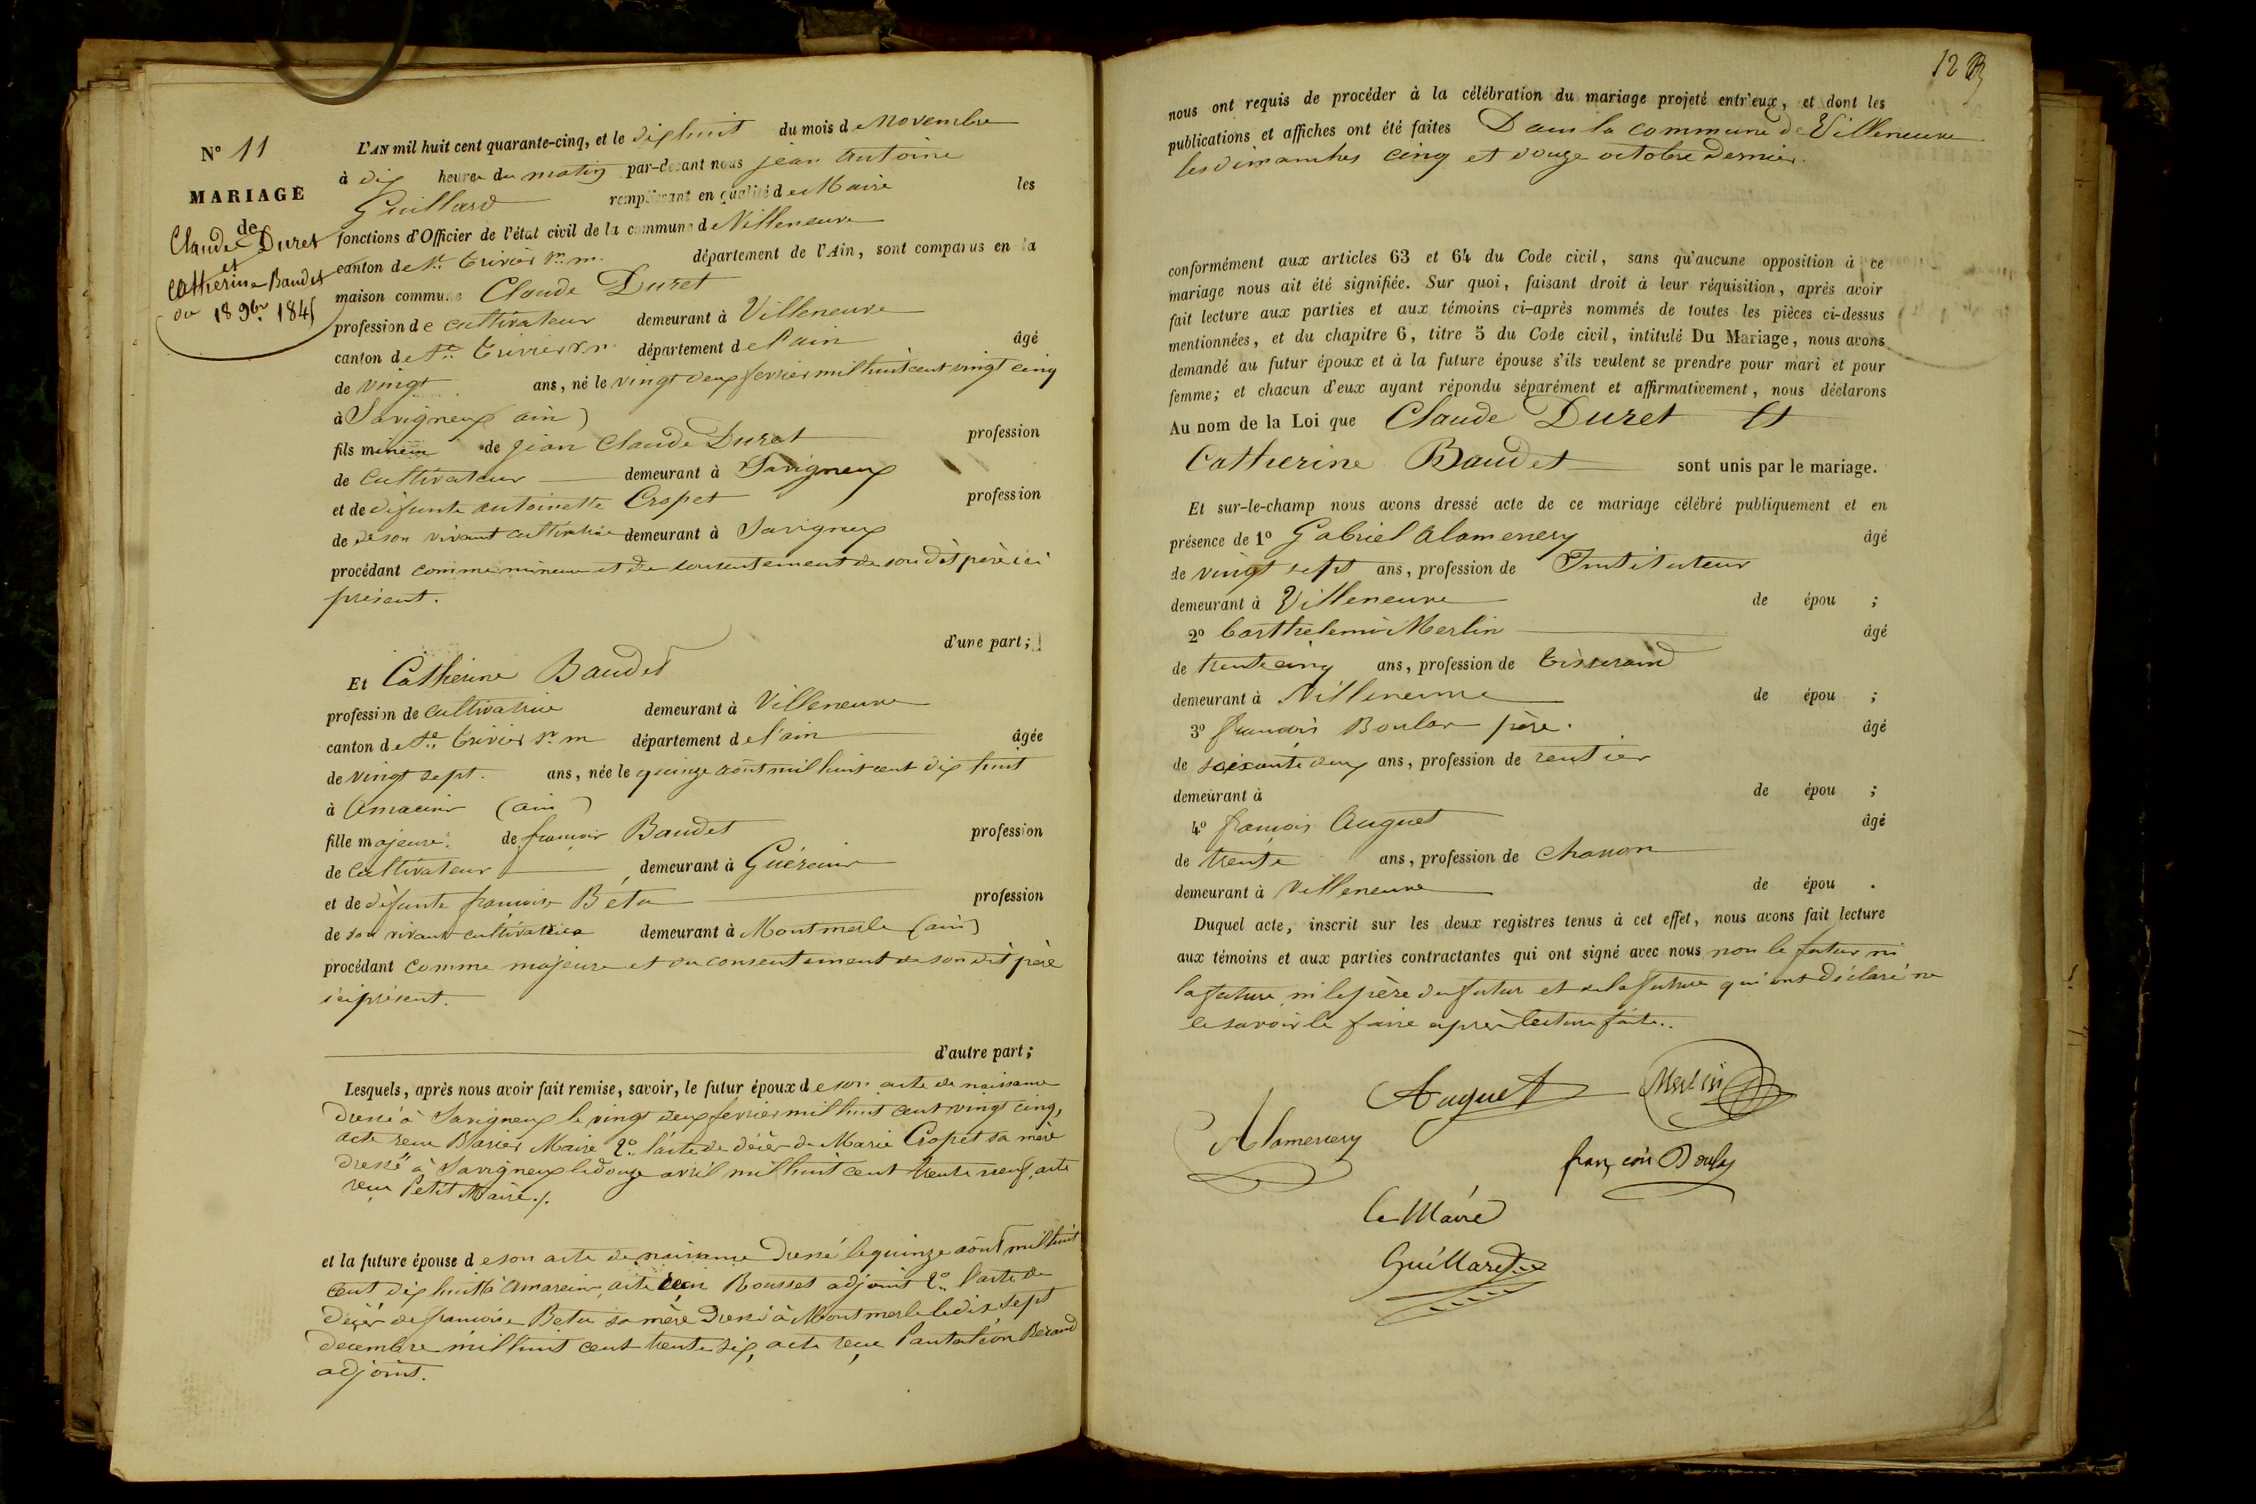 N° 11
MARIAGE
de
Claude Duret
et
Catherine Baudet
du 18 9bre 1845
L'AN mil huit cent quarante-cinq, et le dix huit du mois de Novembre
à dix heures du matin par-devant nous jean Antoine
Guillard remplissant en qualité de Maire les
fonctions d'Officier de l'état civil de la commune de Villeneuve
canton de St. Trivier sr. m. département de l'Ain, sont comparus en la
maison commune Claude Duret
profession de cultivateur demeurant à Villeneuve
canton de St. Trivier sr. département de l'ain âgé
de vingt ans, né le vingt deux fevrier mil huit cent vingt cinq
à Savigneux ain)
fils mineur de Jean Claude Duret profession
de Cultivateur demeurant à Savigneux
et de défunte antoinette Cropet profession
de de son vivant cultivatrice demeurant à Savigneux
procédant comme mineur et du consentement de son dit père ici
présent.
d'une part;
Et Catherine Baudet
profession de Cultivatrice demeurant à Villeneuve
canton de St. Trivier sr. m département de l'ain âgée
de vingt sept. ans, née le quinze août mil huit cent dix huit
à Amareins (ain)
fille majeure. de françois Baudet profession
de Cultivateur demeurant à Guéreins
et de défunte francoise Béta profession
de son vivant cultivatrice demeurant à Montmerle (ain)
procédant comme majeure et du consentement de son dit père
ici présent.
d'autre part;
Lesquels, après nous avoir fait remise, savoir, le futur époux de son acte de naissance
dressé à Savigneux le vingt deux fevrier mil huit cent vingt cinq,
acte recu Maire 2° l'acte de décès de Marie Cropet sa mère
dressé à Savigneux le douze avril mil huit cent trente neuf, acte
reçu Petit Maire./.
et la future épouse de son acte de naissance dressé le quinze août mil huit
cent dix huit à Amarein, acte Rousset adjoint 2° l'acte de
décès de françoise Beta sa mère dressé à Montmerle le dix sept
decembre mil huit cent trente six, acte reçu Pantaléon Béraud
adjoint.
12
nous ont requis de procéder à la célébration du mariage projeté entr'eux, et dont les
publications et affiches ont été faites Dans la commune de Villeneuve
les dimanches cinq et douze octobre dernier.
conformément aux articles 63 et 64 du Code civil, sans qu'aucune opposition à ce
mariage nous ait été signifiée. Sur quoi, faisant droit à leur réquisition, après avoir
fait lecture aux parties et aux témoins ci-après nommés de toutes les pièces ci-dessus
mentionnées, et du chapitre 6, titre 5 du Code civil, intitulé Du Mariage, nous avons
demandé au futur époux et à la future épouse s'ils veulent se prendre pour mari et pour
femme; et chacun d'eux ayant répondu séparément et affirmativement, nous déclarons
Au nom de la Loi que Claude Duret Et
Catherine Baudet sont unis par le mariage.
Et sur-le-champ nous avons dressé acte de ce mariage célébré publiquement et en
présence de 1° Gabriel Alamercery âgé
de vingt sept ans, profession de Instituteur
demeurant à Villeneuve de épou ;
2° barthélemi Merlin âgé
de trente cinq ans, profession de tisserand
demeurant à Villeneuve de épou ;
3° francois Boulas père. âgé
de soixante deux ans, profession de rentier
demeurant à de épou ;
4° françois Auguet âgé
de trente ans, profession de charron
demeurant à Villeneuve de épou .
Duquel acte, inscrit sur les deux registres tenus à cet effet, nous avons fait lecture
aux témoins et aux parties contractantes qui ont signé avec nous non le futur ni
la future ni le père du futur et de la future qui ont déclaré ne
le savoir le faire après lecture faite..
Auguet
Merlin
Alamercery
françois Boulas
Le Maire
Guillard